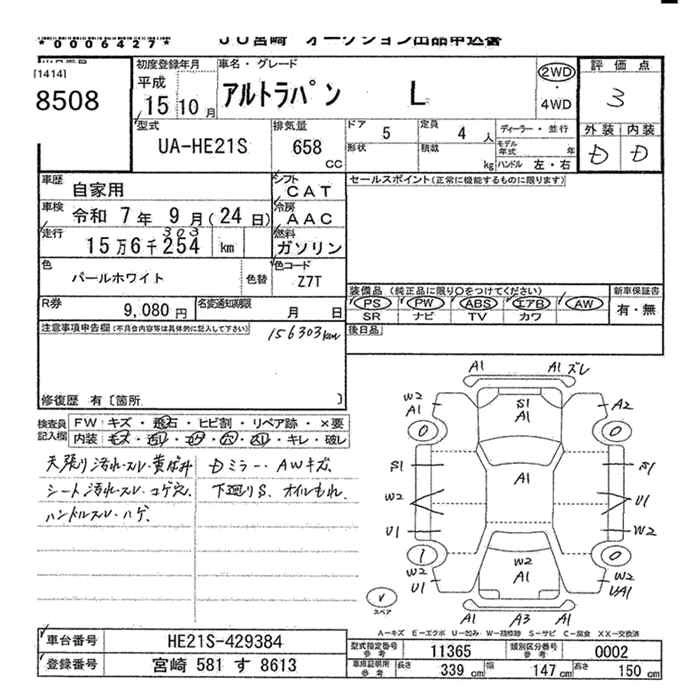 *0006427* JU宮崎 オークション出品申込書
[1414]
8508
初度登録年月 車名・グレード
平成 15年 10月 アルトラパン L
2WD ・ 4WD
評価点
3
外装 内装
D D
型式 UA-HE21S
排気量 658 CC
ドア 5 定員 4人
形状 積載 kg
ディーラー・並行
モデル年式 年
ハンドル 左・右
車歴 自家用
シフト CAT
セールスポイント(正常に機能するものに限ります)
車検 令和 7年 9月(24日)
冷房 AAC
走行 15万6千254 km
303
燃料 ガソリン
色 パールホワイト 色替
色コード Z7T
R券 9,080円 名変通知期限 月 日
装備品(純正品に限り○をつけてください) 新車保証書
PS PW ABS エアB AW 有・無
SR ナビ TV カワ
後日品
注意事項申告欄(不具合内容等は具体的に記入して下さい)
156303km
修復歴 有[箇所 ]
検査員記入欄
FW キズ・飛石・ヒビ割・リペア跡・×要
内装 キズ・汚れ・コゲ・穴・凹レ・キレ・破レ
天張り汚れ・スレ・黄ばみ
シート汚れ・スレ・コゲ穴
ハンドルスレ・ハゲ.
Dミラー・AWキズ.
下廻りS、オイルもれ.
A1 A1 ズレ
W2 A1 S1 A1 A2
0 0
S1 A1 S1
W2 U1
U1 W2
1 0
W2 U1 W2 A1 W2 UA1
A1 A3 A1
スペア
A-キズ E-エクボ U-凹み W-補修跡 S-サビ C-腐食 XX-交換済
車台番号 HE21S-429384
登録番号 宮崎 581 す 8613
型式指定番号 参考 11365 類別区分番号 参考 0002
車庫証明用 参考 長さ 339 cm 幅 147 cm 高さ 150 cm